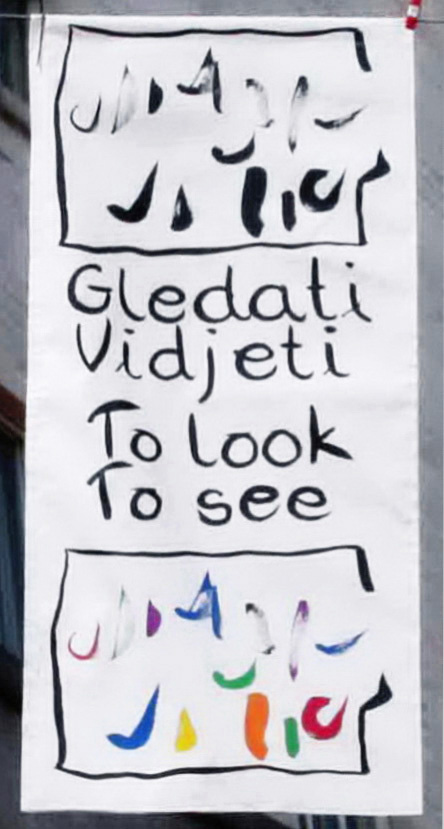 Gledati
Vidjeti
To look
To see